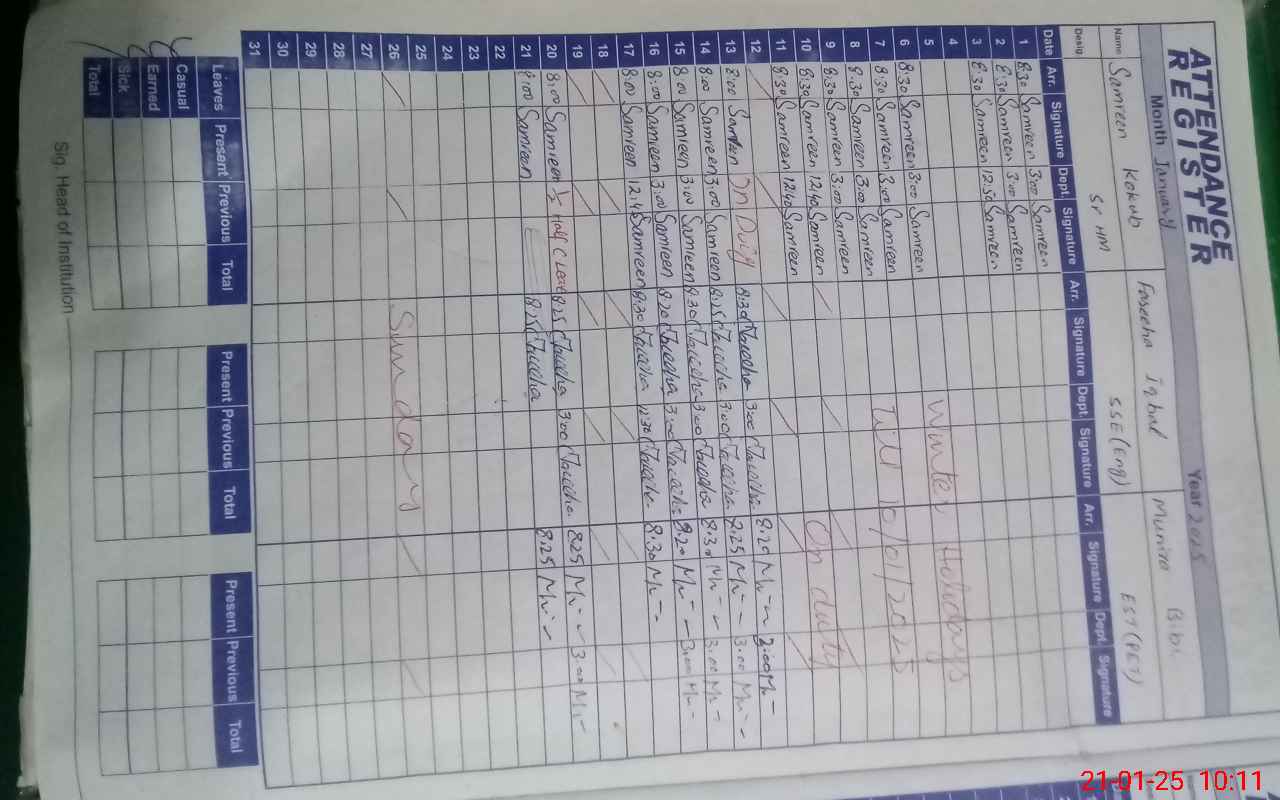 ATTENDANCE
REGISTER
Month January Year 2025
Name Samreen Kokub Faseeha Iqbal Munira Bibi
Desig Sr HM SSE (Eng) EST (PET)
Date Arr. Signature Dept. Signature Arr. Signature Dept. Signature Arr. Signature Dept. Signature
1 8:30 Samreen 3:00 Samreen
2 8:30 Samreen 3:00 Samreen
3 8:30 Samreen 12:30 Samreen
4 Winter Holidays
5
6 8:30 Samreen 3:00 Samreen
7 8:30 Samreen 3:00 Samreen Till 10/01/2025
8 8:30 Samreen 3:00 Samreen
9 8:30 Samreen 3:00 Samreen On duty
10 8:30 Samreen 12:40 Samreen
11 8:30 Samreen 12:40 Samreen
12
13 8:00 Samreen On Duty 8:30 3:00 8.20
14 8:00 Samreen 3:00 Samreen 8:25 3:00 8.25 3.00
15 8:00 Samreen 3:00 Samreen 8:30 3:00 8.30 3.00
16 8:00 Samreen 3:00 Samreen 8:20 3:00 8.20 3.00
17 8:00 Samreen Samreen 8:30 11:30 8.30
18
19
20 8:00 Samreen 1/2 Half 8:25 3:00 8.25 3.00
21 8:00 Samreen 8:25 8.25
22
23
24
25
26 Sunday
27
28
29
30
31
Leaves Present Previous Total Present Previous Total Present Previous Total
Casual
Earned
Sick
Total
Sig. Head of Institution
21-01-25 10:11